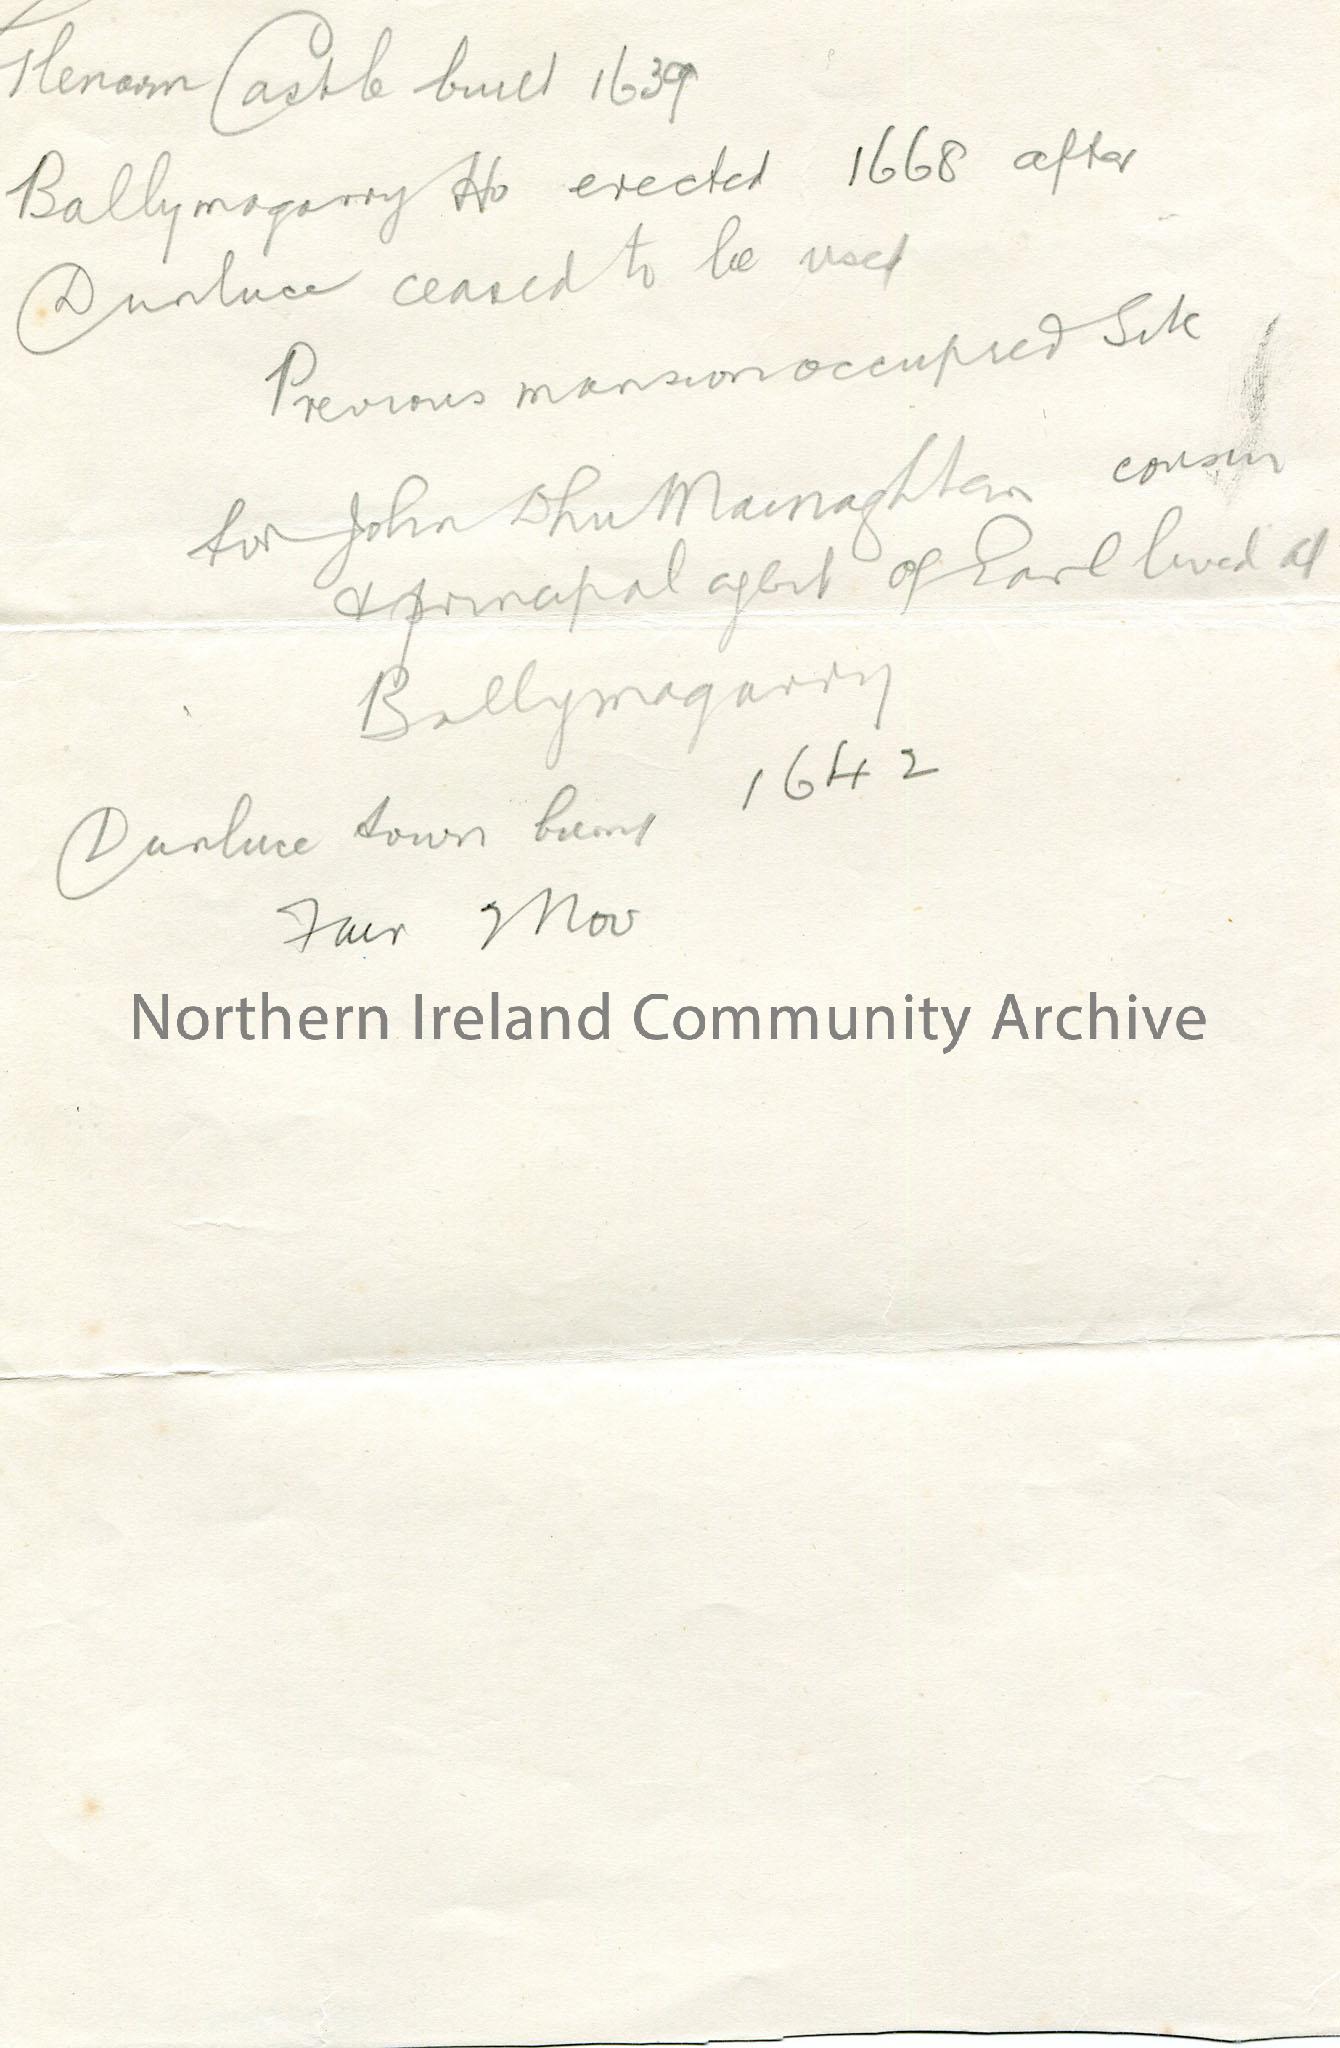 Glenarm Castle built 1639
Ballymagarry Ho erected 1668 after
Dunluce ceased to be used
Previous mansion occupied site
for John Dhu Macnaghten cousin
& principal agent of Earl lived at
Ballymagarry
Dunluce town burnt 1642
Fair Nov
Northern Ireland Community Archive